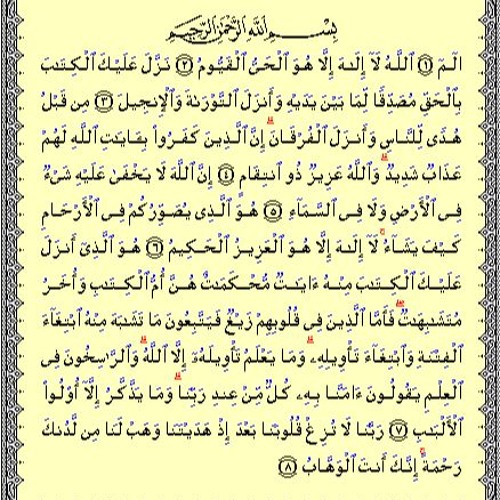 بِسْمِ ٱللَّهِ ٱلرَّحْمَٰنِ ٱلرَّحِيمِ
الٓمٓ ۝١ ٱللَّهُ لَآ إِلَٰهَ إِلَّا هُوَ ٱلْحَىُّ ٱلْقَيُّومُ ۝٢ نَزَّلَ عَلَيْكَ ٱلْكِتَٰبَ
بِٱلْحَقِّ مُصَدِّقًا لِّمَا بَيْنَ يَدَيْهِ وَأَنزَلَ ٱلتَّوْرَىٰةَ وَٱلْإِنجِيلَ ۝٣ مِن قَبْلُ
هُدًى لِّلنَّاسِ وَأَنزَلَ ٱلْفُرْقَانَ ۗ إِنَّ ٱلَّذِينَ كَفَرُوا۟ بِـَٔايَٰتِ ٱللَّهِ لَهُمْ
عَذَابٌ شَدِيدٌ ۗ وَٱللَّهُ عَزِيزٌ ذُو ٱنتِقَامٍ ۝٤ إِنَّ ٱللَّهَ لَا يَخْفَىٰ عَلَيْهِ شَىْءٌ
فِى ٱلْأَرْضِ وَلَا فِى ٱلسَّمَآءِ ۝٥ هُوَ ٱلَّذِى يُصَوِّرُكُمْ فِى ٱلْأَرْحَامِ
كَيْفَ يَشَآءُ ۚ لَآ إِلَٰهَ إِلَّا هُوَ ٱلْعَزِيزُ ٱلْحَكِيمُ ۝٦ هُوَ ٱلَّذِىٓ أَنزَلَ
عَلَيْكَ ٱلْكِتَٰبَ مِنْهُ ءَايَٰتٌ مُّحْكَمَٰتٌ هُنَّ أُمُّ ٱلْكِتَٰبِ وَأُخَرُ
مُتَشَٰبِهَٰتٌ ۖ فَأَمَّا ٱلَّذِينَ فِى قُلُوبِهِمْ زَيْغٌ فَيَتَّبِعُونَ مَا تَشَٰبَهَ مِنْهُ ٱبْتِغَآءَ
ٱلْفِتْنَةِ وَٱبْتِغَآءَ تَأْوِيلِهِۦ ۗ وَمَا يَعْلَمُ تَأْوِيلَهُۥٓ إِلَّا ٱللَّهُ ۗ وَٱلرَّٰسِخُونَ فِى
ٱلْعِلْمِ يَقُولُونَ ءَامَنَّا بِهِۦ كُلٌّ مِّنْ عِندِ رَبِّنَا ۗ وَمَا يَذَّكَّرُ إِلَّآ أُو۟لُوا۟
ٱلْأَلْبَٰبِ ۝٧ رَبَّنَا لَا تُزِغْ قُلُوبَنَا بَعْدَ إِذْ هَدَيْتَنَا وَهَبْ لَنَا مِن لَّدُنكَ
رَحْمَةً ۚ إِنَّكَ أَنتَ ٱلْوَهَّابُ ۝٨